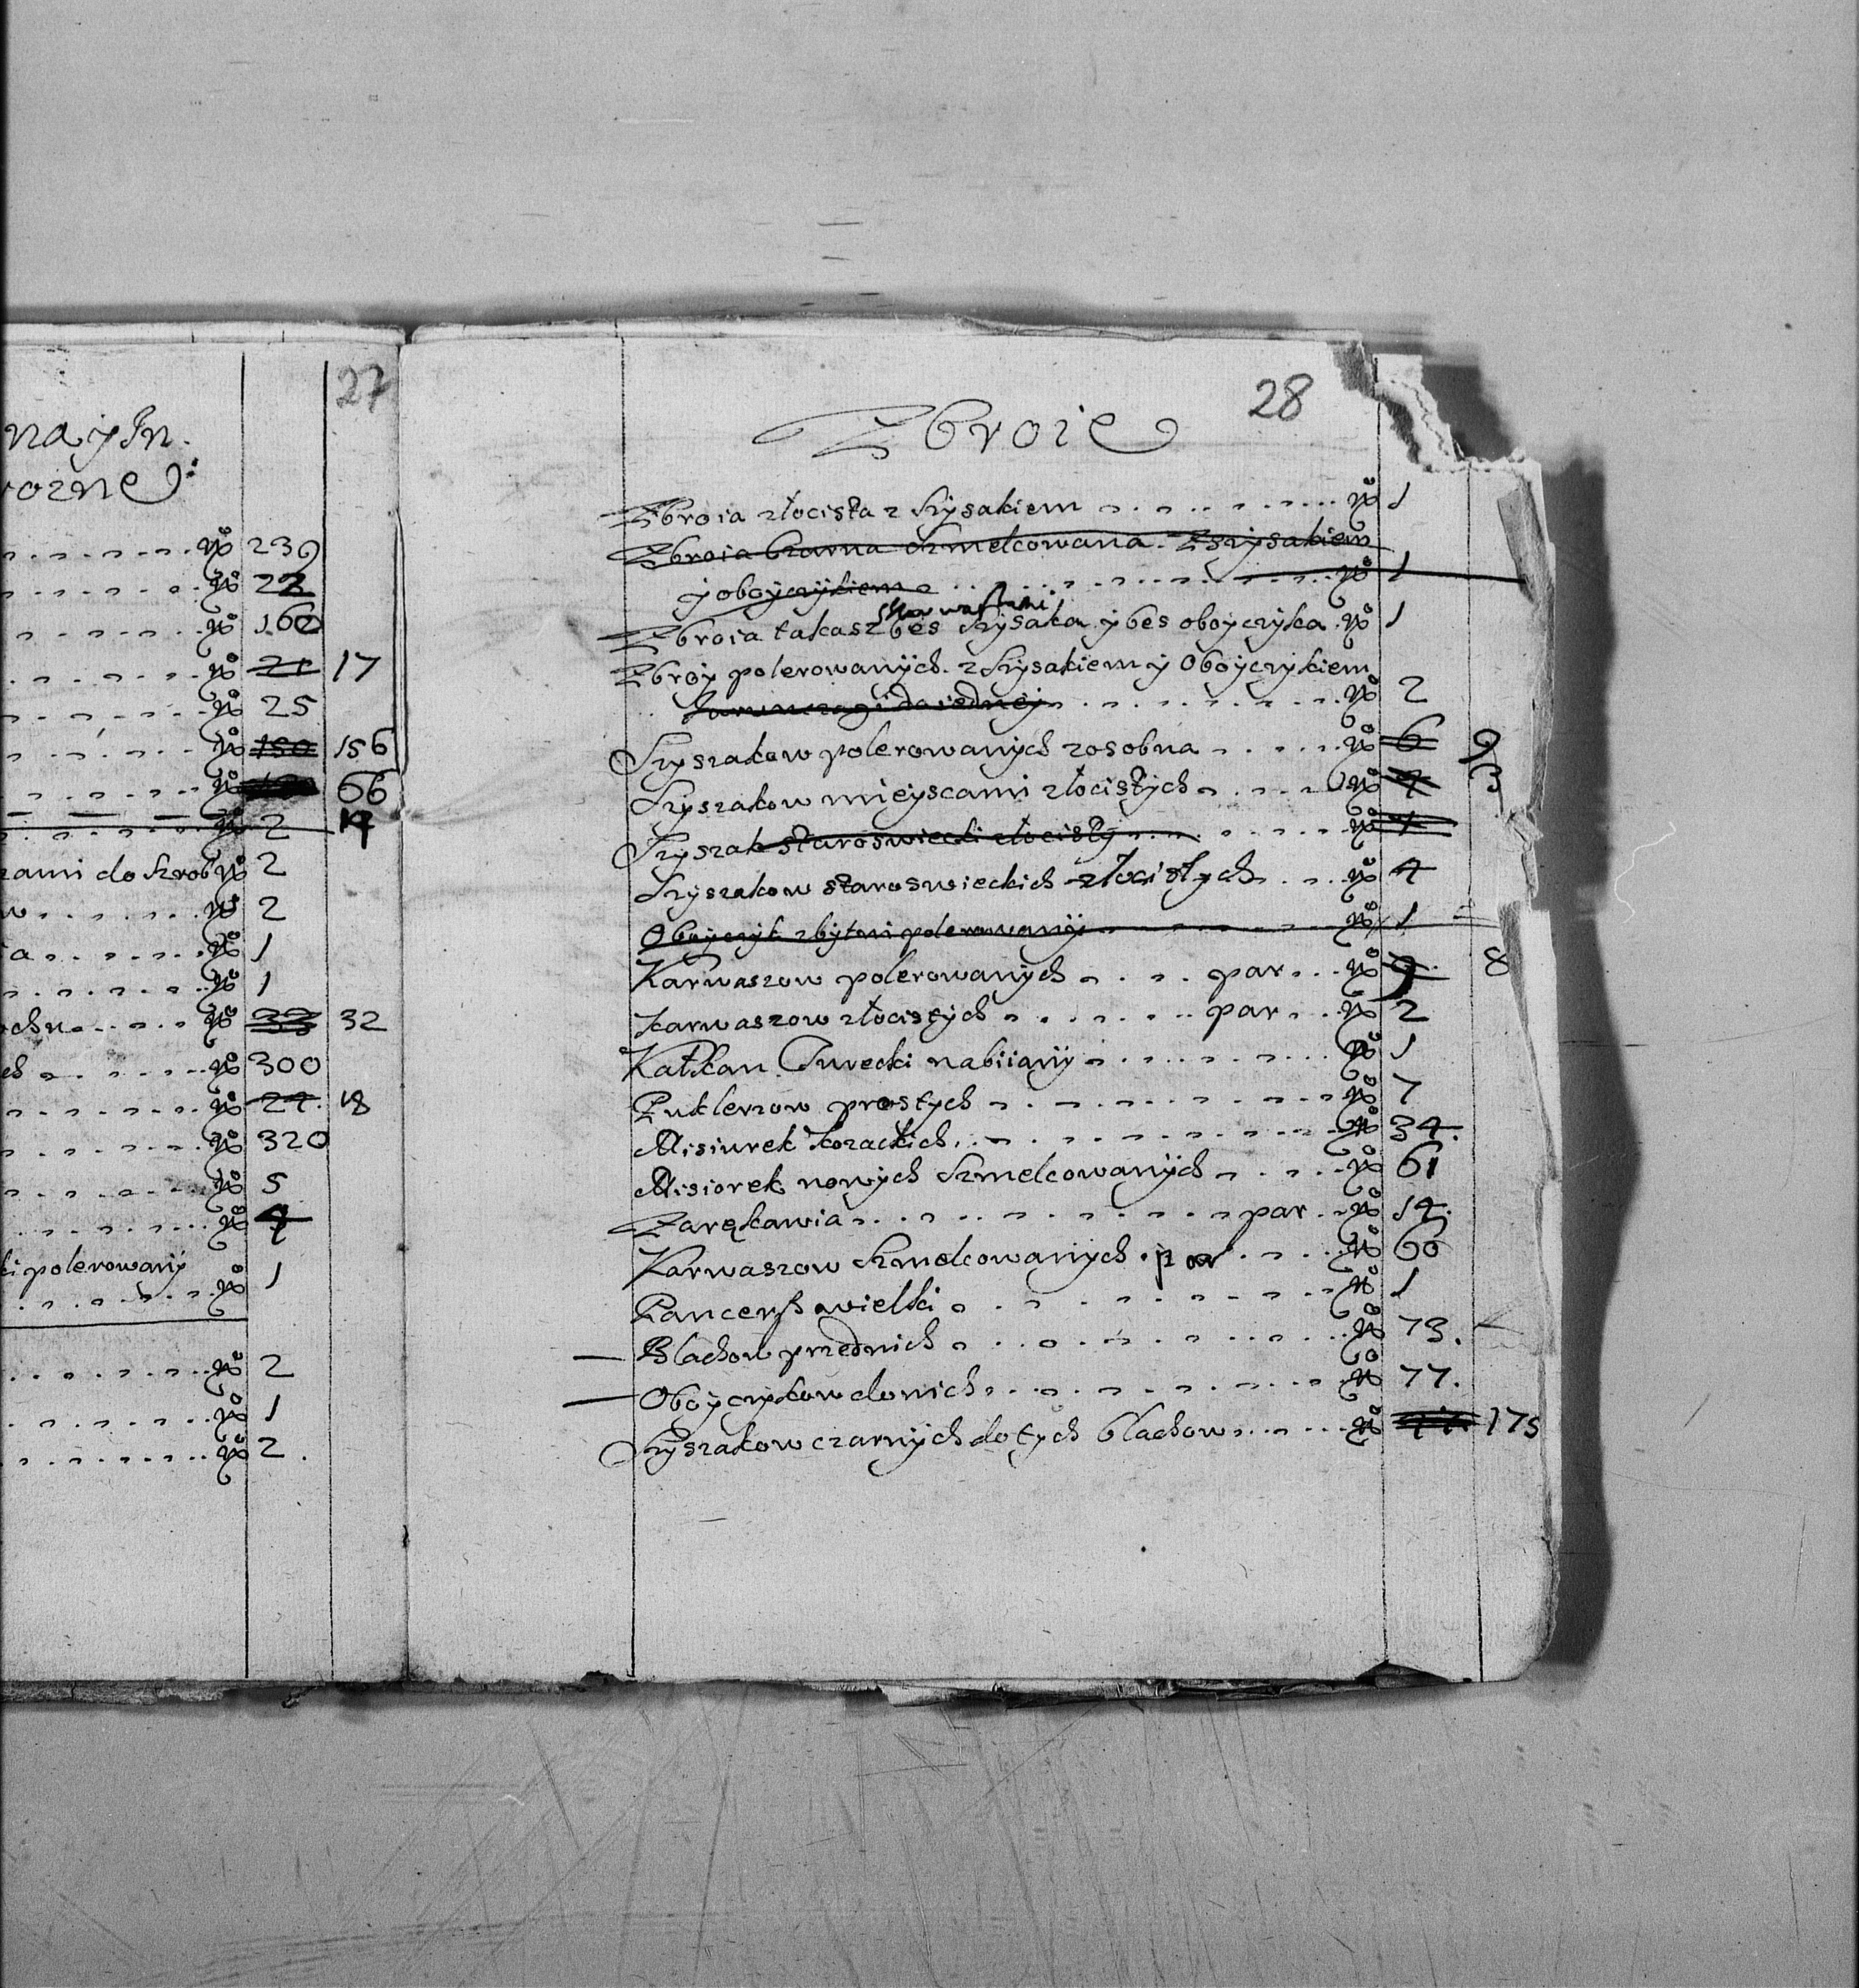 27
na y In.
rozne:
No 239
No 22
No 160
No 21 17
No 25
No 150 156
No 66
No 2 14
zami do szrob No 2
w No 2
a No 1
No 1
ochu No 33 32
ch No 300
No 24. 18
No 320
No 5
No 4
ki polerowany
No 1
No 2
No 1
No 2.
28
Zbroie
Zbroia złocista z Szysakiem No 1
Zbroia Czarna Szmelcowana. Z szysakiem
y oboyczykiem No 1
Zbroia takasz bes Szysaka y bes oboyczyka No 1
Zbroy polerowanych. z Szysakiem y Oboyczykiem
No 2
Szyszakow polerowanych zosobna No 6 9
Szyszakow mieyscami złocistych No 4 3
Szyszak staroswiecki złocisty No 1
Szyszakow staroswieckich złocistych No 4
Oboyczyk zbytni polerowany No 1
Karwaszow polerowanych par No 9. 8
Karwaszow złocistych par No 2
Kałkan Turecki nabiiany No 1
Puklerzow prostych No 7
Misiurek kozackich No 34.
Misiorek nowych Szmelcowanych No 61
Zarękawia par No 14.
Karwaszow Szmelcowanych par No 60
Pancersz wielki No 1
Blachow przednich No 73.
Oboyczykow donich No 77.
Szyszakow czarnych do tych blachow No 175